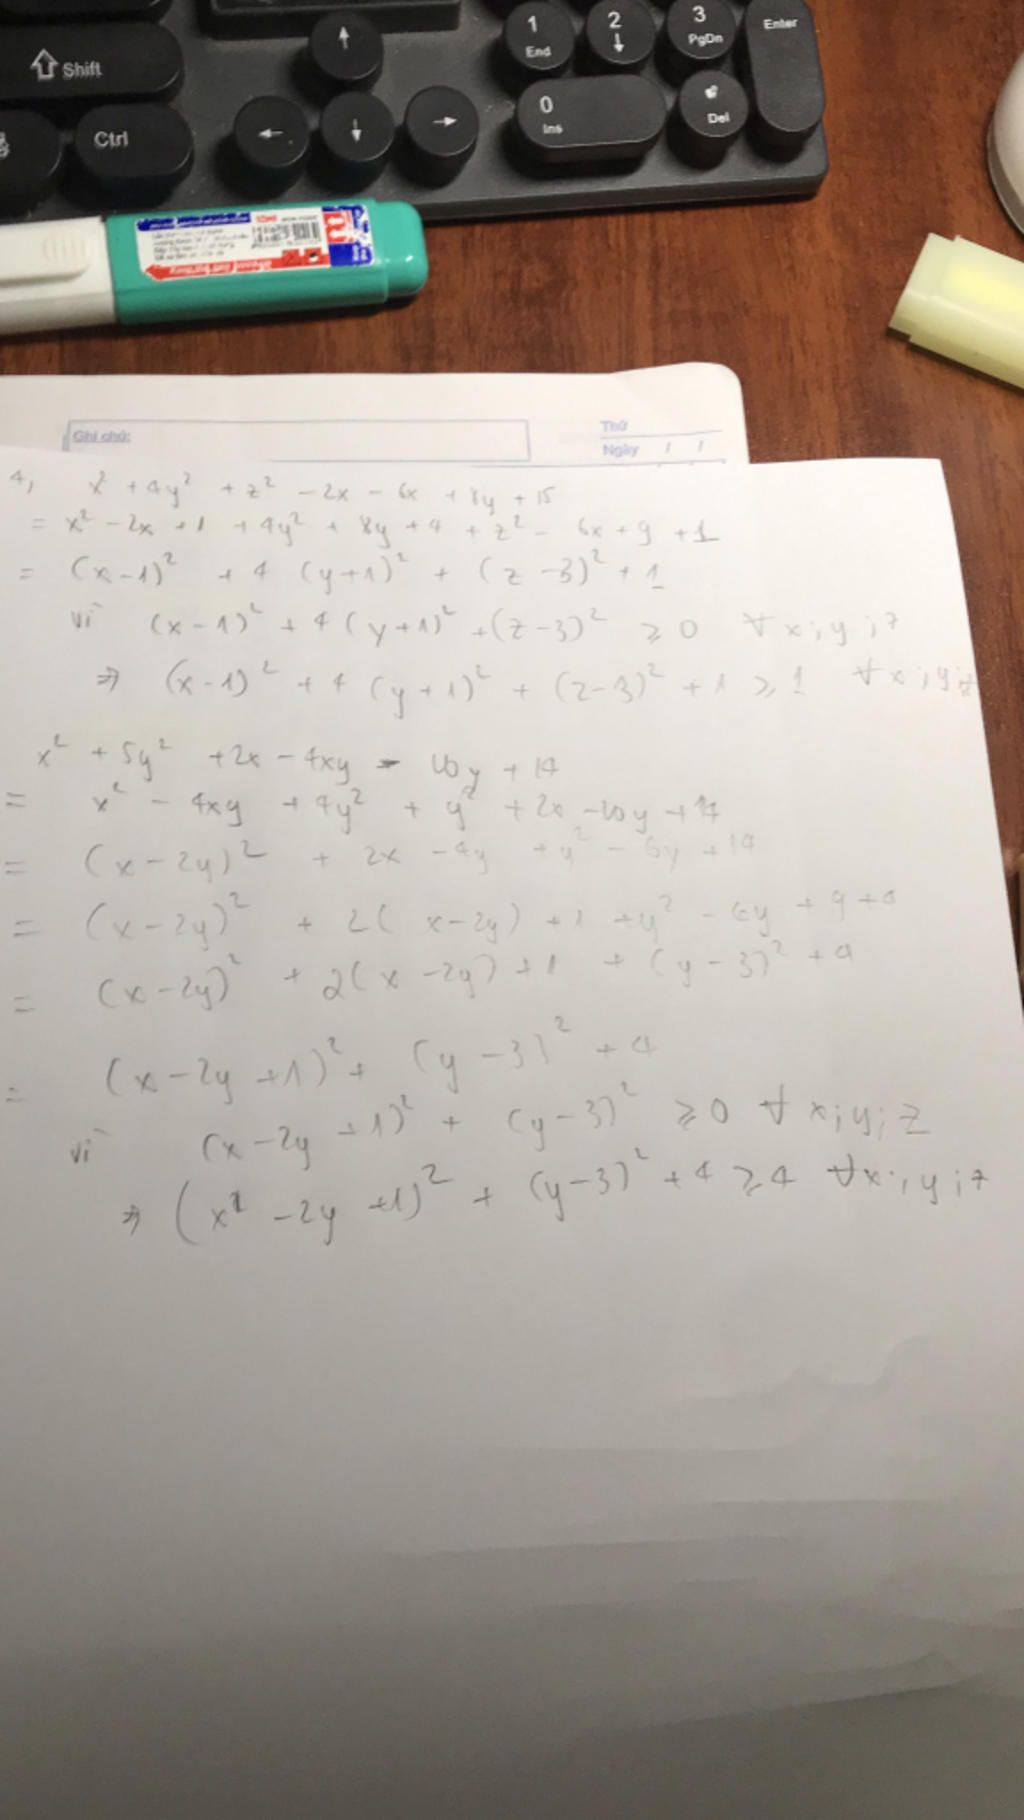 Shift
Ctrl
↑
←
↓
→
1
End
2
↓
3
PgDn
0
Ins
Del
Enter
Ghi chú:
Thứ
Ngày / /
4, x² + 4y² + z² - 2x - 6x + 8y + 15
= x² - 2x + 1 + 4y² + 8y + 4 + z² - 6x + 9 + 1
= (x-1)² + 4 (y+1)² + (z-3)² + 1
vì (x-1)² + 4(y+1)² + (z-3)² ≥ 0 ∀ x;y;z
⇒ (x-1)² + 4 (y+1)² + (z-3)² + 1 ≥ 1 ∀ x;y;z
x² + 5y² + 2x - 4xy - 10y + 14
= x² - 4xy + 4y² + y² + 2x - 10y + 14
= (x-2y)² + 2x - 4y + y² - 6y + 14
= (x-2y)² + 2(x-2y) + 1 + y² - 6y + 9 + 4
= (x-2y)² + 2(x-2y) + 1 + (y-3)² + 4
= (x-2y+1)² + (y-3)² + 4
vì (x-2y+1)² + (y-3)² ≥ 0 ∀ x;y;z
⇒ (x² -2y +1)² + (y-3)² + 4 ≥ 4 ∀ x;y;z